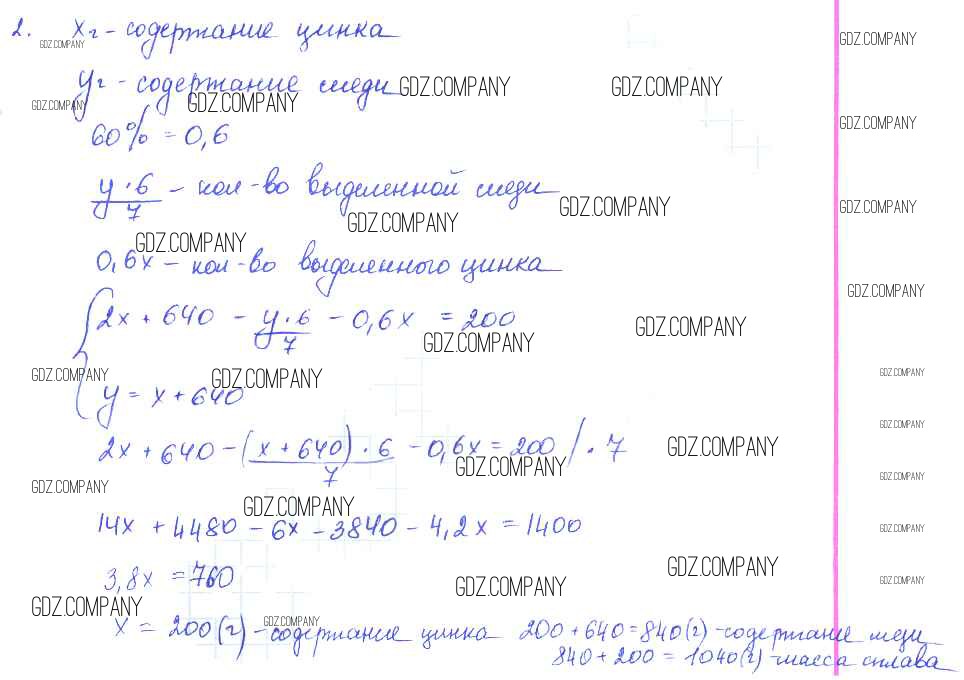 2. x г - содержание цинка
GDZ.COMPANY
GDZ.COMPANY
y г - содержание меди
GDZ.COMPANY
GDZ.COMPANY
GDZ.COMPANY
GDZ.COMPANY
60% = 0,6
GDZ.COMPANY
y·6/7 - кол-во выделенной меди
GDZ.COMPANY
GDZ.COMPANY
GDZ.COMPANY
GDZ.COMPANY
0,6x - кол-во выделенного цинка
GDZ.COMPANY
2x + 640 - y·6/7 - 0,6x = 200
GDZ.COMPANY
GDZ.COMPANY
GDZ.COMPANY
GDZ.COMPANY
GDZ.COMPANY
y = x + 640
GDZ.COMPANY
2x + 640 - (x + 640)·6/7 - 0,6x = 200 /·7
GDZ.COMPANY
GDZ.COMPANY
GDZ.COMPANY
GDZ.COMPANY
GDZ.COMPANY
14x + 4480 - 6x - 3840 - 4,2x = 1400
GDZ.COMPANY
3,8x = 760
GDZ.COMPANY
GDZ.COMPANY
GDZ.COMPANY
GDZ.COMPANY
GDZ.COMPANY
x = 200 (г) - содержание цинка 200 + 640 = 840 (г) - содержание меди
840 + 200 = 1040 (г) - масса сплава